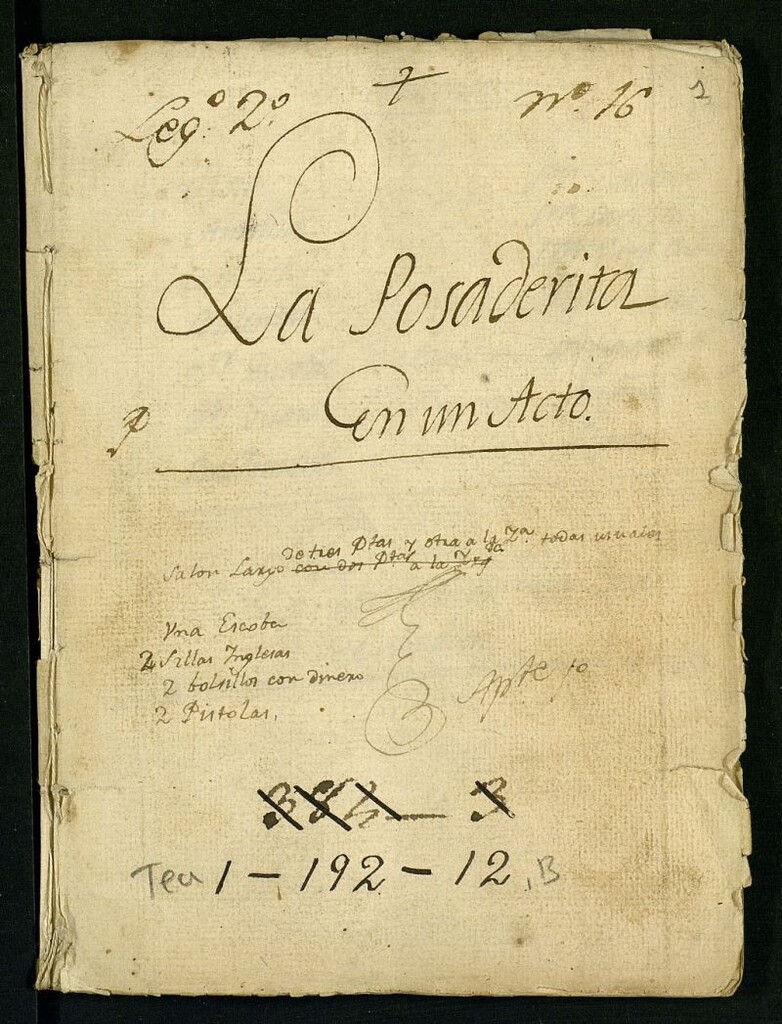 Leg.º 2.º † nº 16 1
La Posaderita
En un Acto.
de tres Ptas y otra a la Yzª. todas usuales
Salon Largo con dos Ptas a la Yzqda
Vna Escoba
2 Sillas Ynglesas
2 bolsillos con dinero
2 Pistolas.
Apte 1º
384 — 3
Tea 1 - 192 - 12, B